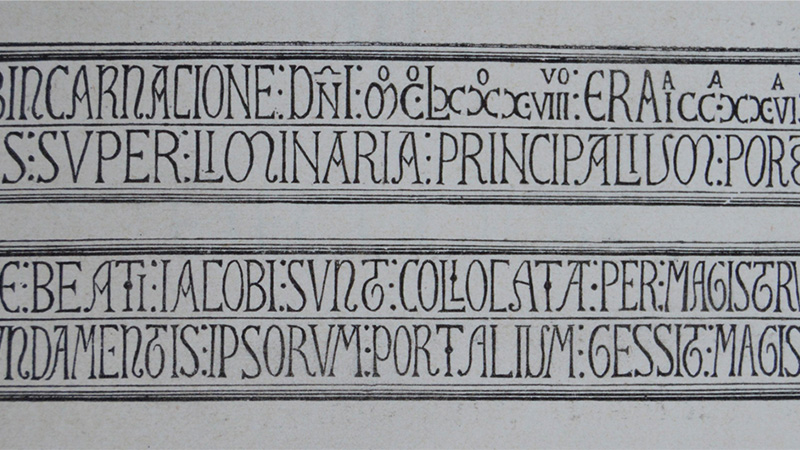 BINCARNACIONE:DÑI:MºCºLXXXºVIIIᵛᵒ:ERA IᴬCCᴬXXVIᴬ
S:SVPER:LIMINARIA:PRINCIPALIUM:PORT
E:BEATI:IACOBI:SVNT:COLLOCATA:PER:MAGISTRV
VNDAMENTIS:IPSORVM:PORTALIUM:GESSIT:MAGIS